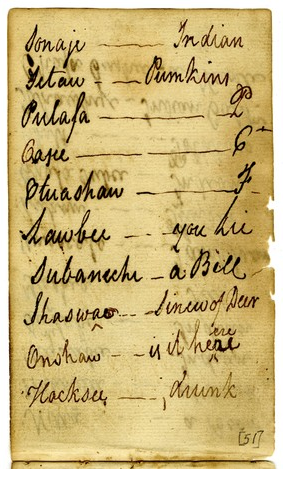 Sonaji —— Indian
Titaw - — Pumkins
Pulafa ——— P
Cape ——— C
Etuashaw ——— F
Lawbee — you Lie
Subaneche — a Bill
Shaswao — Sinew of Deer
Onohaw - - - is it here
Hocksee - - - drunk
[51]